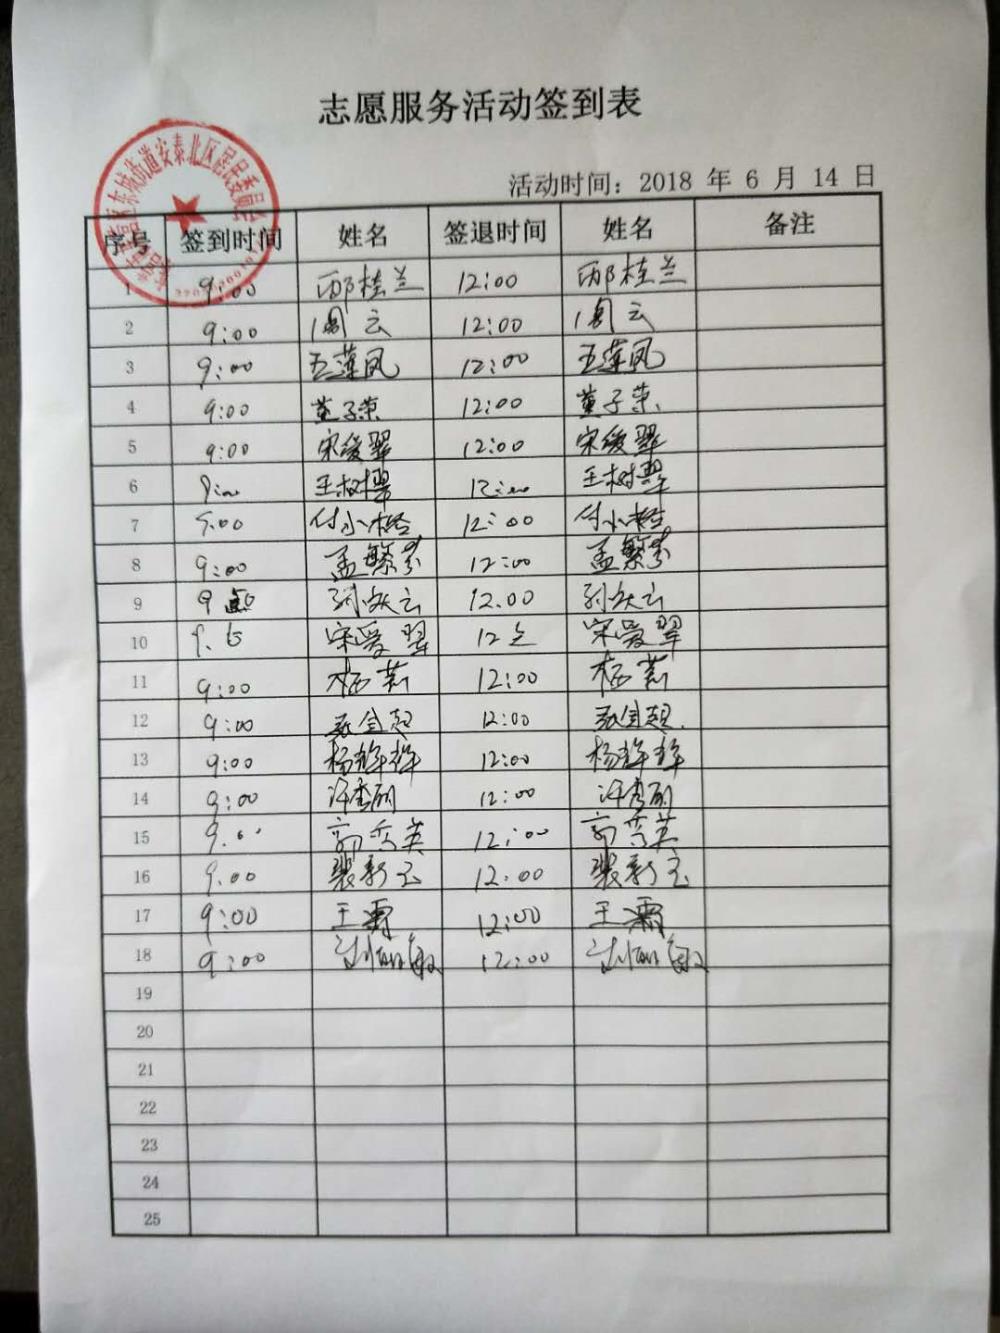 志愿服务活动签到表
活动时间：2018 年 6 月 14 日
序号 签到时间 姓名 签退时间 姓名 备注
1 9:00 邴桂兰 12:00 邴桂兰
2 9:00 周云 12:00 周云
3 9:00 王莲凤 12:00 王莲凤
4 9:00 董子荣 12:00 董子荣
5 9:00 宋俊翠 12:00 宋俊翠
6 9:00 王树翠 12:00 王树翠
7 9:00 付小 12:00 付小
8 9:00 孟繁芬 12:00 孟繁芬
9 9 12.00
10 宋爱翠 12 宋爱翠
11 9:00 杨 12:00 杨
12 9:00 12:00
13 9:00 杨 12:00 杨
14 9:00 许秀丽 12:00 许秀丽
15 郭秀英 12:00 郭秀英
16 9.00 裴新玉 12:00 裴新玉
17 9:00 王霜 12:00 王霜
18 9:00 刘丽敏 12:00 刘丽敏
19
20
21
22
23
24
25
东城街道安泰北区居民委员会